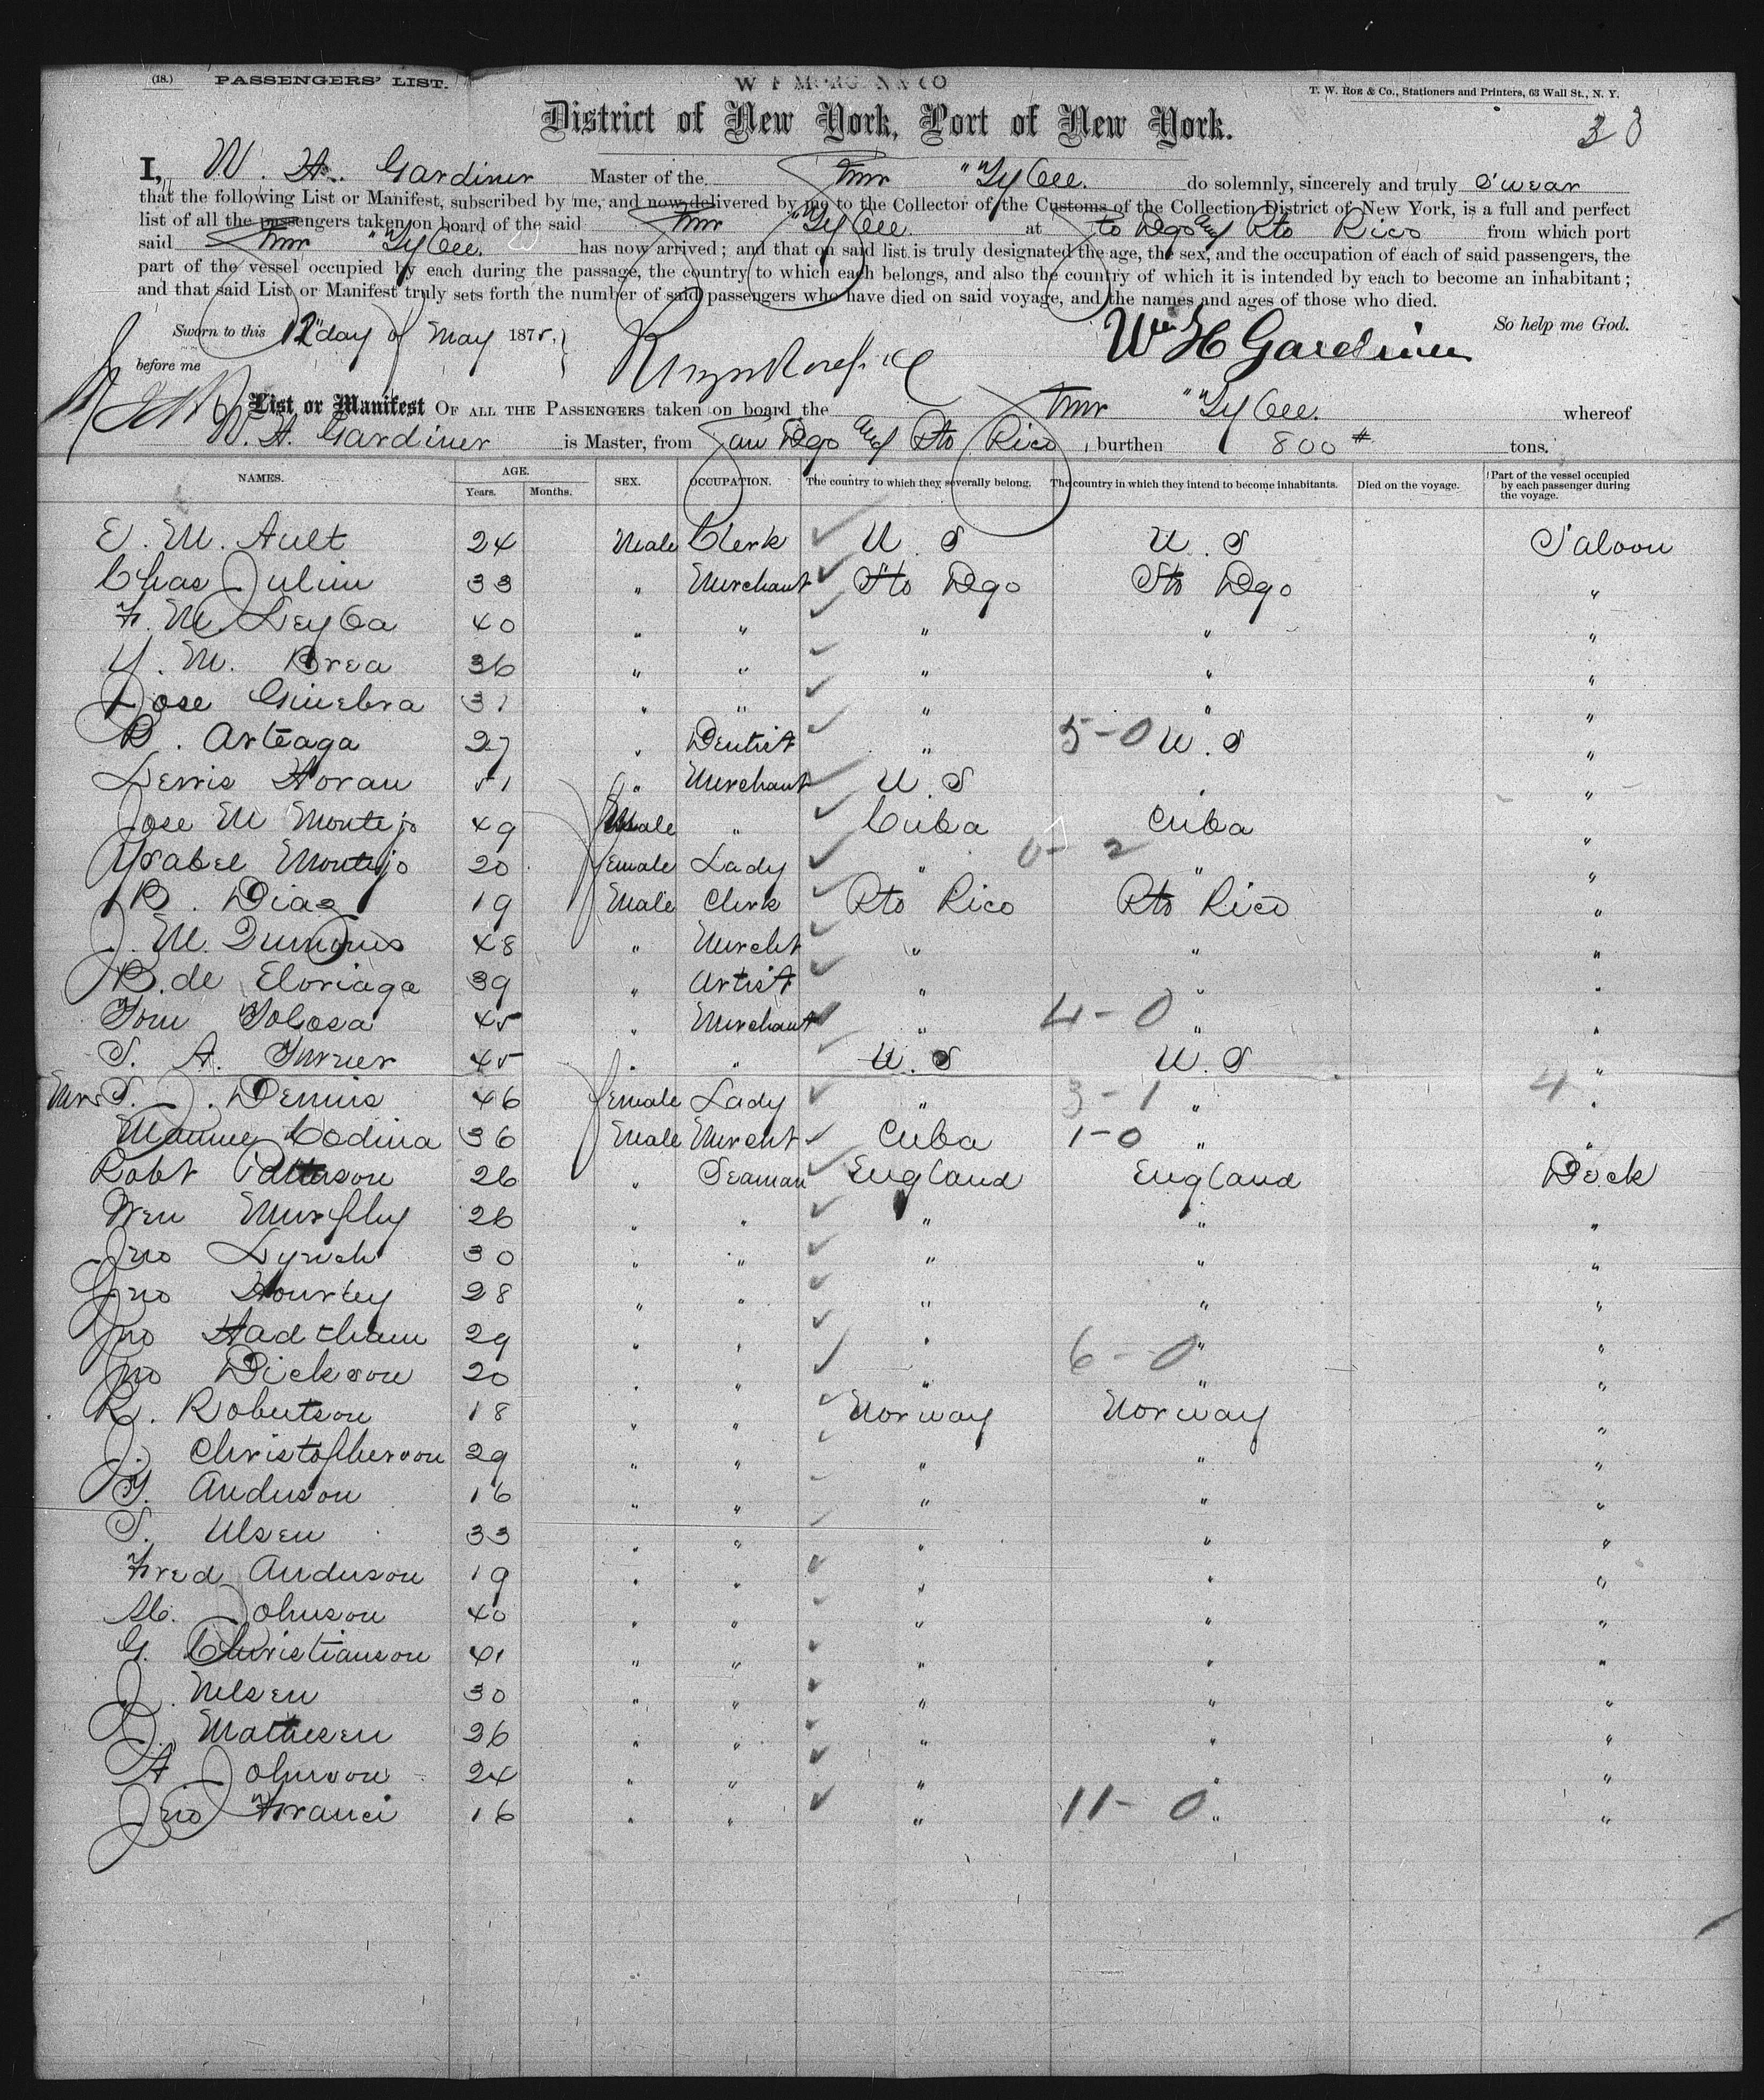 (18.) PASSENGERS' LIST.
T. W. Roe & Co., Stationers and Printers, 63 Wall St., N. Y.
District of New York, Port of New York.
33
I, W. H. Gardiner Master of the Stmr "Tybee. do solemnly, sincerely and truly Swear
that the following List or Manifest, subscribed by me, and now delivered by me to the Collector of the Customs of the Collection District of New York, is a full and perfect
list of all the passengers taken on board of the said Stmr "Tybee. at Sto Dgo and Pto Rico from which port
said Stmr "Tybee. has now arrived; and that on said list is truly designated the age, the sex, and the occupation of each of said passengers, the
part of the vessel occupied by each during the passage, the country to which each belongs, and also the country of which it is intended by each to become an inhabitant;
and that said List or Manifest truly sets forth the number of said passengers who have died on said voyage, and the names and ages of those who died.
Sworn to this 12" day of May 1875. So help me God.
before me Wm H Gardiner
List or Manifest OF ALL THE PASSENGERS taken on board the Stmr "Tybee. whereof
W. H. Gardiner is Master, from San Dgo and Pto Rico, burthen 800 tons.
NAMES. AGE. Years. Months. SEX. OCCUPATION. The country to which they severally belong. The country in which they intend to become inhabitants. Died on the voyage. Part of the vessel occupied by each passenger during the voyage.
E. M. Ault 24 Male Clerk U. S U. S Saloon
Chas Julim 33 " Merchant Sto Dgo Sto Dgo "
F. M. Leyba 40 " " " " "
Y. M. Brea 36 " " " " "
Jose Ginebra 31 " " " " "
B. Arteaga 27 " Dentist " 5-0 U. S "
Dennis Horan 51 " Merchant U. S " "
Jose M Montejo 49 Male " Cuba Cuba "
Ysabel Montejo 20 female Lady " 0-2 " "
B. Diaz 19 Male Clerk Pto Rico Pto Rico "
J. M. 48 " Mercht " " "
B. de Eloriaga 39 " Artist " " "
Tom Tolosa 45 " Merchant " 4-0 " "
S. A. Turner 45 " " U. S U. S "
Mrs S. J. Dennis 46 female Lady " 3-1 " 4 "
Codina 36 Male Mercht Cuba 1-0 " "
Robt Patterson 26 " Seaman England England Deck
Wm Murphy 26 " " " " "
Jno Lynch 30 " " " " "
Jno Hourley 28 " " " " "
Jno Hadtham 29 " " " " "
Jno Dickson 20 " " " 6-0 " "
R. Robertson 18 " " Norway Norway "
J. Christopherson 29 " " " " "
G. Anderson 16 " " " " "
S. Ulsen 33 " " " " "
Fred Anderson 19 " " " " "
M. Johnson 40 " " " " "
G. Christianson 41 " " " " "
J. Nelsen 30 " " " " "
J. Mathesen 26 " " " " "
A Johnson 24 " " " " "
Jno Franci 16 " " " 11-0 " "